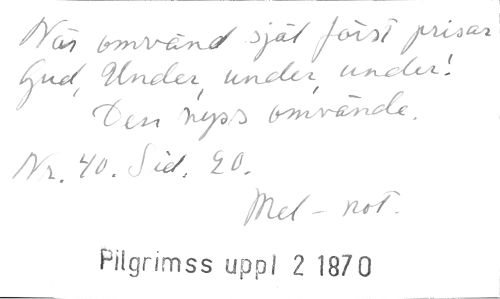 När omvänd själ först prisar
Gud, Under, under, under!
Den nyss omvände.
Nr. 40. Sid. 20.
Mel-not.
Pilgrimss uppl 2 1870